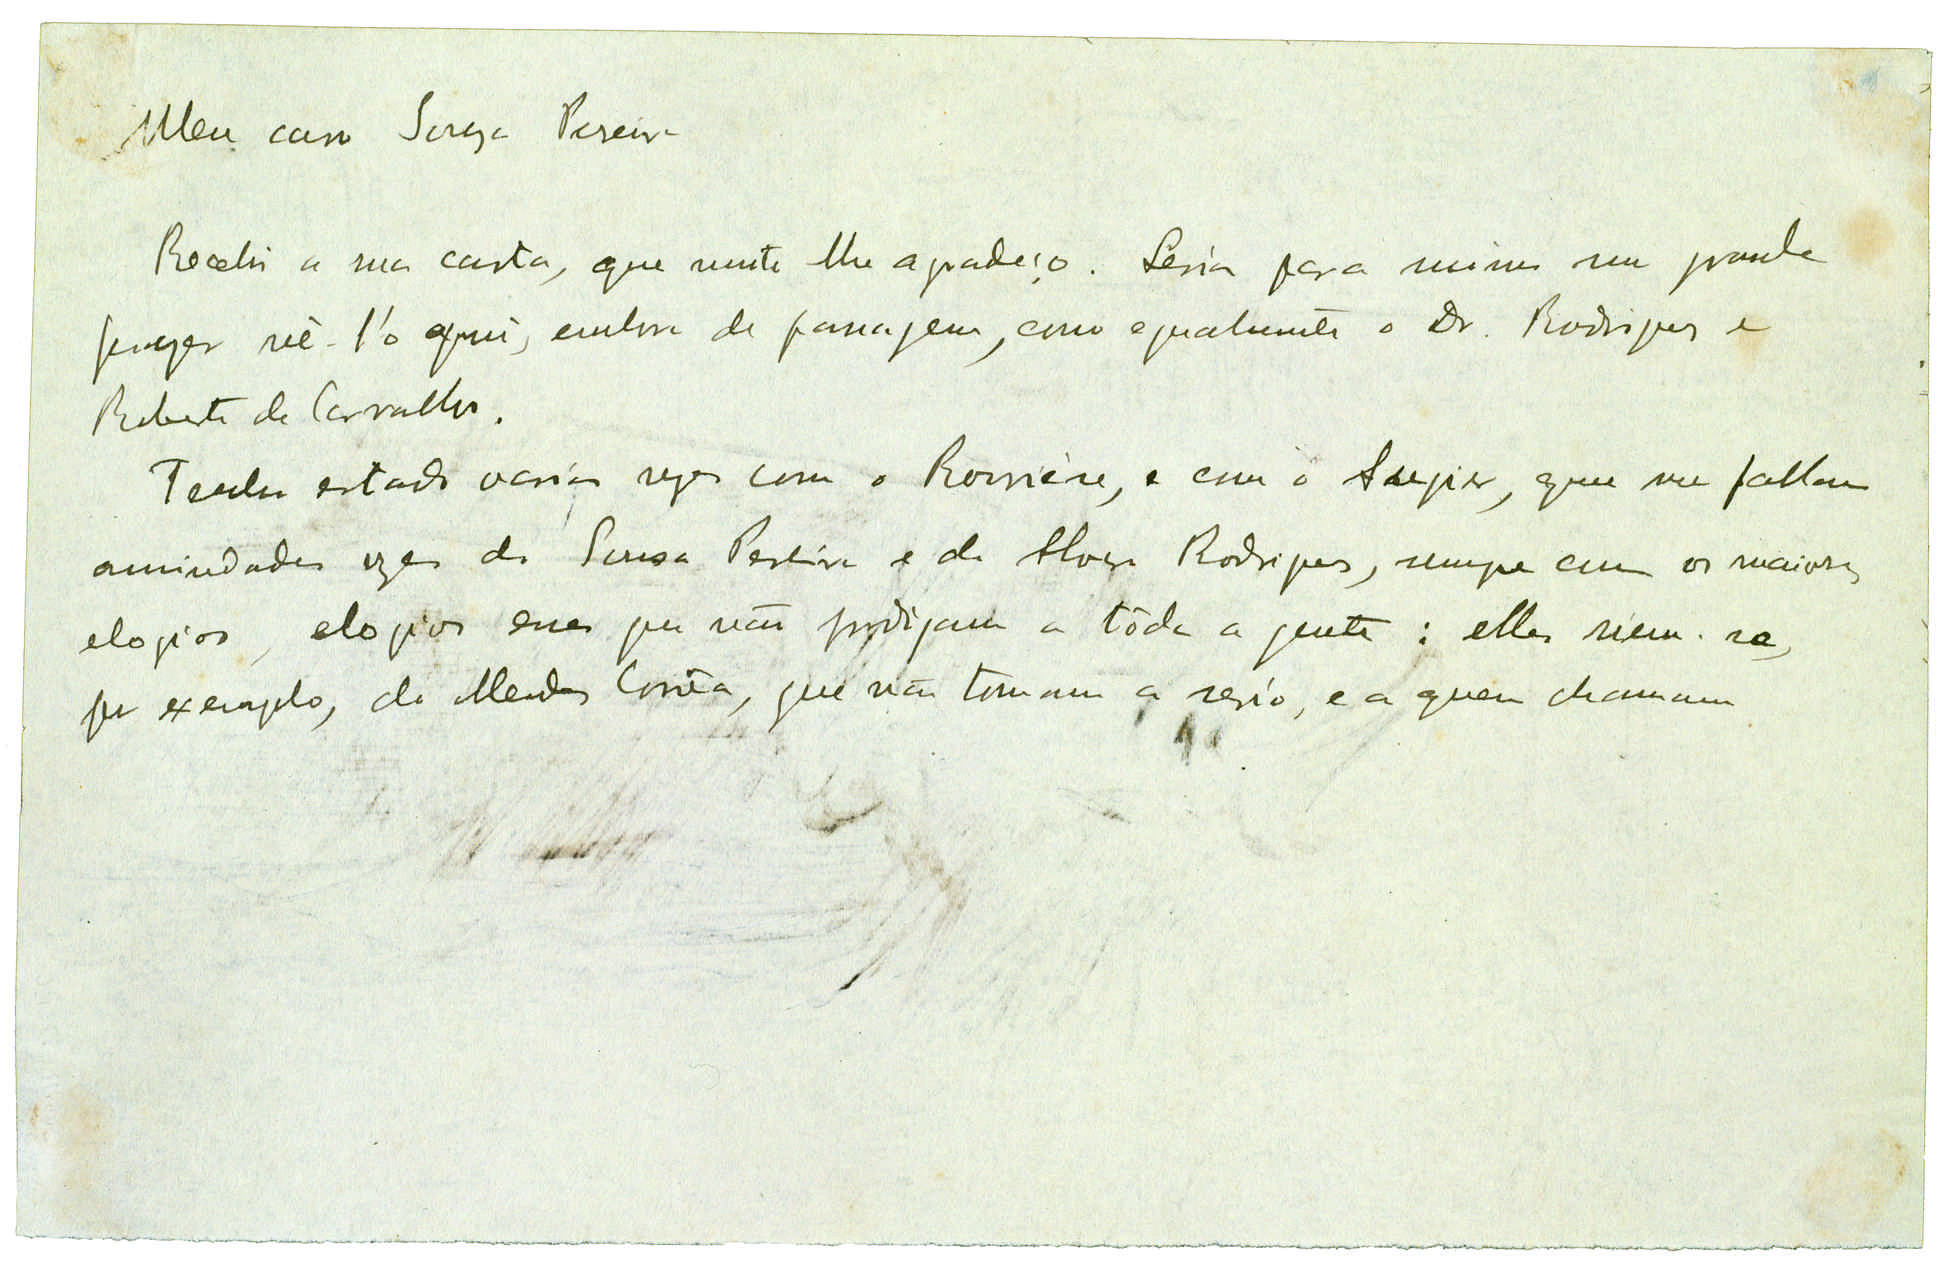 Meu caro Souza Pereira
Recebi a sua carta, que muito lhe agradeço. Seria para mim um grande
prazer vê-l'o aqui, embora de passagem, como egualmente o Dr. Rodrigues e
Roberto de Carvalho.
Tenho estado varias vezes com o Rouvière, e com o Augier, que me fallam
amiudadas vezes do Sousa Pereira e do Alvaro Rodrigues, sempre com os maiores
elogios, elogios esses que não prodigam a tôda a gente: elles riem-se,
por exemplo, do Mendes Corrêa, que não tomam a serio, e a quem chamam